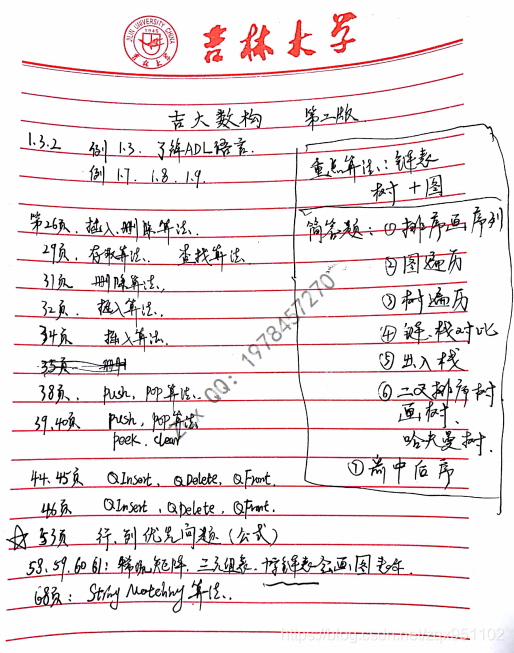 JILIN UNIVERSITY CHINA
1946
吉林大学
吉大数构 第二版
1.3.2 例1.3. 了解ADL语言.
例1.7 1.8 1.9
第26页. 插入.删除算法.
29页. 存取算法. 查找算法
31页 删除算法.
32页. 插入算法.
34页 插入算法.
35页 删
38页. push, pop算法.
39.40页 push, pop算法
peek. clear
44.45页 QInsert, QDelete, QFront.
46页 QInsert, QDelete, QFront.
☆ 53页 行.列优先问题(公式)
58.59.60 61: 稀疏矩阵. 三元组表. 十字链表会画图表示
68页: String Matching 算法.
重点算法: 链表
树 + 图
简答题: ① 排序画序列
② 图遍历
③ 树遍历
④ 链.栈对比
⑤ 出入栈
⑥ 二叉排序树.
画树.
哈夫曼树.
⑦ 前中后序
QQ: 1978457270